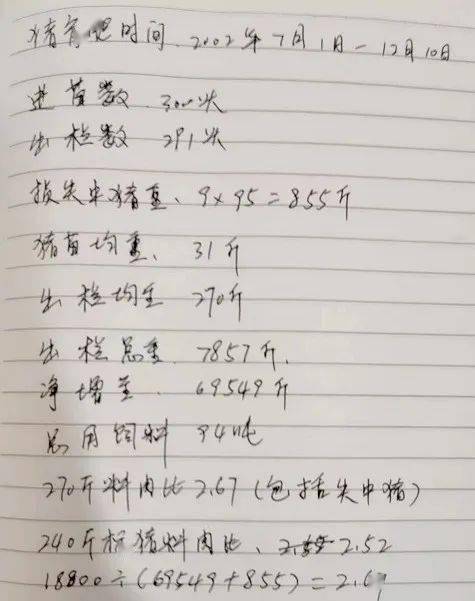 猪育肥时间、2002年7月1日-12月10日
进苗数 300头
出栏数 291头
损失中猪重、9×95=855斤
猪苗均重、31斤
出栏均重 270斤
出栏总重、7857斤、
净增重、69549斤
总用饲料 94吨
270斤料肉比2.67(包括失中猪)
240斤标猪料肉比、2.52
18800÷(69549+855)=2.67